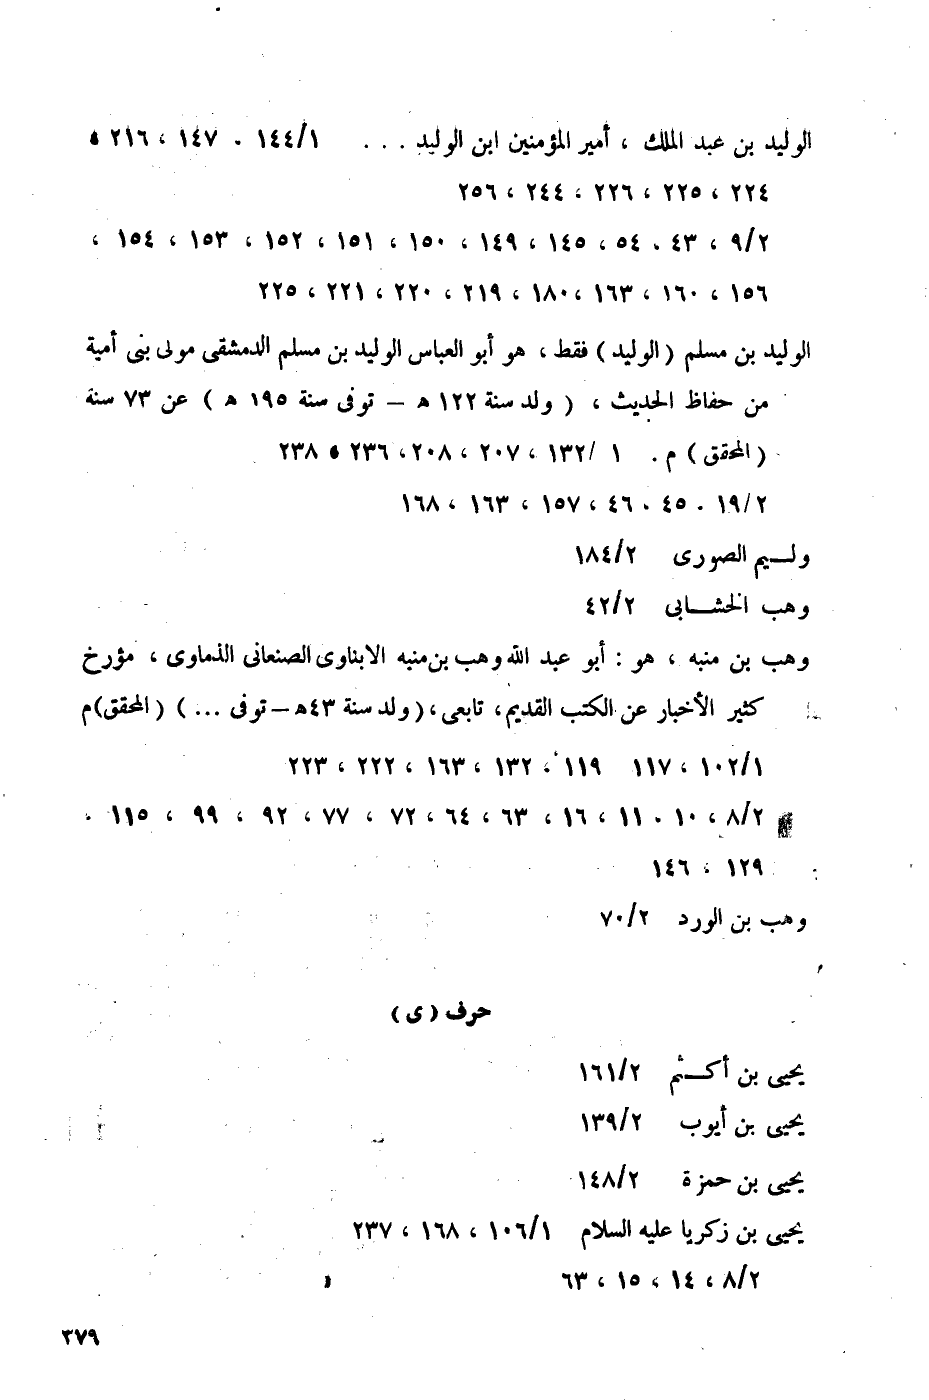 الوليد بن عبد الملك ، أمير المؤمنين ابن الوليد . . . ١/ ١٤٤ . ١٤٧ ، ٢١٦ ،
٢٢٤ ، ٢٢٥ ، ٢٢٦ ، ٢٤٤ ، ٢٥٦
٩/٢ ، ٤٣ . ٥٤ ، ١٤٥ ، ١٤٩ ، ١٥٠ ، ١٥١ ، ١٥٢ ، ١٥٣ ، ١٥٤ ،
١٥٦ ، ١٦٠ ، ١٦٣ ، ١٨٠ ، ٢١٩ ، ٢٢٠ ، ٢٢١ ، ٢٢٥
الوليد بن مسلم ( الوليد ) فقط ، هو أبو العباس الوليد بن مسلم الدمشقى مولى بنى أمية
من حفاظ الحديث ، ( ولد سنة ١٢٢ ه – توفى سنة ١٩٥ ه ) عن ٧٣ سنة
( المحقق ) م . ١ /١٣٢ ، ٢٠٧ ، ٢٠٨ ، ٢٣٦ ، ٢٣٨
١٩/٢ . ٤٥ . ٤٦ ، ١٥٧ ، ١٦٣ ، ١٦٨
ولـــيم الصورى ١٨٤/٢
وهب الخشـــابى ٤٢/٢
وهب بن منبه ، هو : أبو عبد الله وهب بن منبه الابناوى الصنعانى الذماوى ، مؤرخ
كثير الأخبار عن الكتب القديم ، تابعى ، ( ولد سنة ٤٣ه – توفى ... ) ( المحقق ) م
١٠٢/١ ، ١١٧ ١١٩ ، ١٣٢ ، ١٦٣ ، ٢٢٢ ، ٢٢٣
٨/٢ ، ١٠ . ١١ ، ١٦ ، ٦٣ ، ٦٤ ، ٧٢ ، ٧٧ ، ٩٢ ، ٩٩ ، ١١٥ .
١٢٩ ، ١٤٦
وهب بن الورد ٧٠/٢
حرف ( ى )
يحيى بن أكـــثم ١٦١/٢
يحيى بن أيوب ١٣٩/٢
يحيى بن حمزة ١٤٨/٢
يحيى بن زكريا عليه السلام ١٠٦/١ ، ١٦٨ ، ٢٣٧
٨/٢ ، ١٤ ، ١٥ ، ٦٣
٣٧٩